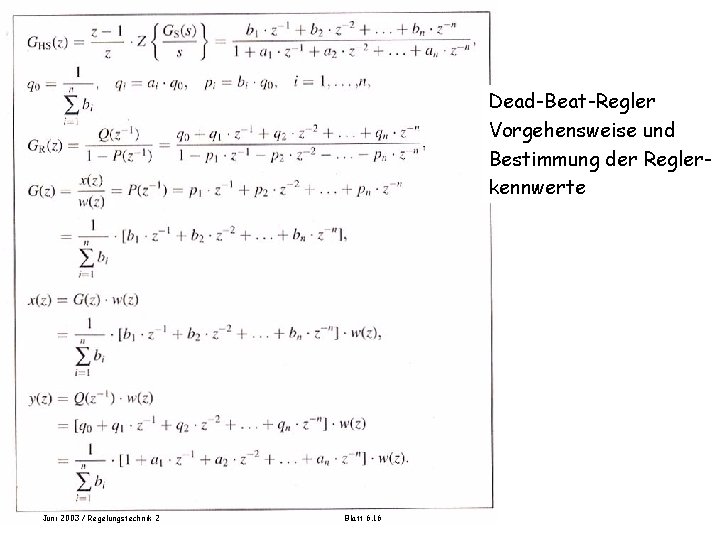 G_HS(z) = (z − 1)/z · Z{G_S(s)/s} = (b₁ · z⁻¹ + b₂ · z⁻² + ... + bₙ · z⁻ⁿ)/(1 + a₁ · z⁻¹ + a₂ · z⁻² + ... + aₙ · z⁻ⁿ),
q₀ = 1/(∑_{i=1}^{n} bᵢ), qᵢ = aᵢ · q₀, pᵢ = bᵢ · q₀, i = 1, ..., n,
G_R(z) = Q(z⁻¹)/(1 − P(z⁻¹)) = (q₀ + q₁ · z⁻¹ + q₂ · z⁻² + ... + qₙ · z⁻ⁿ)/(1 − p₁ · z⁻¹ − p₂ · z⁻² − ... − pₙ · z⁻ⁿ),
G(z) = x(z)/w(z) = P(z⁻¹) = p₁ · z⁻¹ + p₂ · z⁻² + ... + pₙ · z⁻ⁿ
= 1/(∑_{i=1}^{n} bᵢ) · [b₁ · z⁻¹ + b₂ · z⁻² + ... + bₙ · z⁻ⁿ],
x(z) = G(z) · w(z)
= 1/(∑_{i=1}^{n} bᵢ) · [b₁ · z⁻¹ + b₂ · z⁻² + ... + bₙ · z⁻ⁿ] · w(z),
y(z) = Q(z⁻¹) · w(z)
= [q₀ + q₁ · z⁻¹ + q₂ · z⁻² + ... + qₙ · z⁻ⁿ] · w(z)
= 1/(∑_{i=1}^{n} bᵢ) · [1 + a₁ · z⁻¹ + a₂ · z⁻² + ... + aₙ · z⁻ⁿ] · w(z).
Dead-Beat-Regler
Vorgehensweise und
Bestimmung der Regler-
kennwerte
Juni 2003 / Regelungstechnik 2
Blatt 6.16